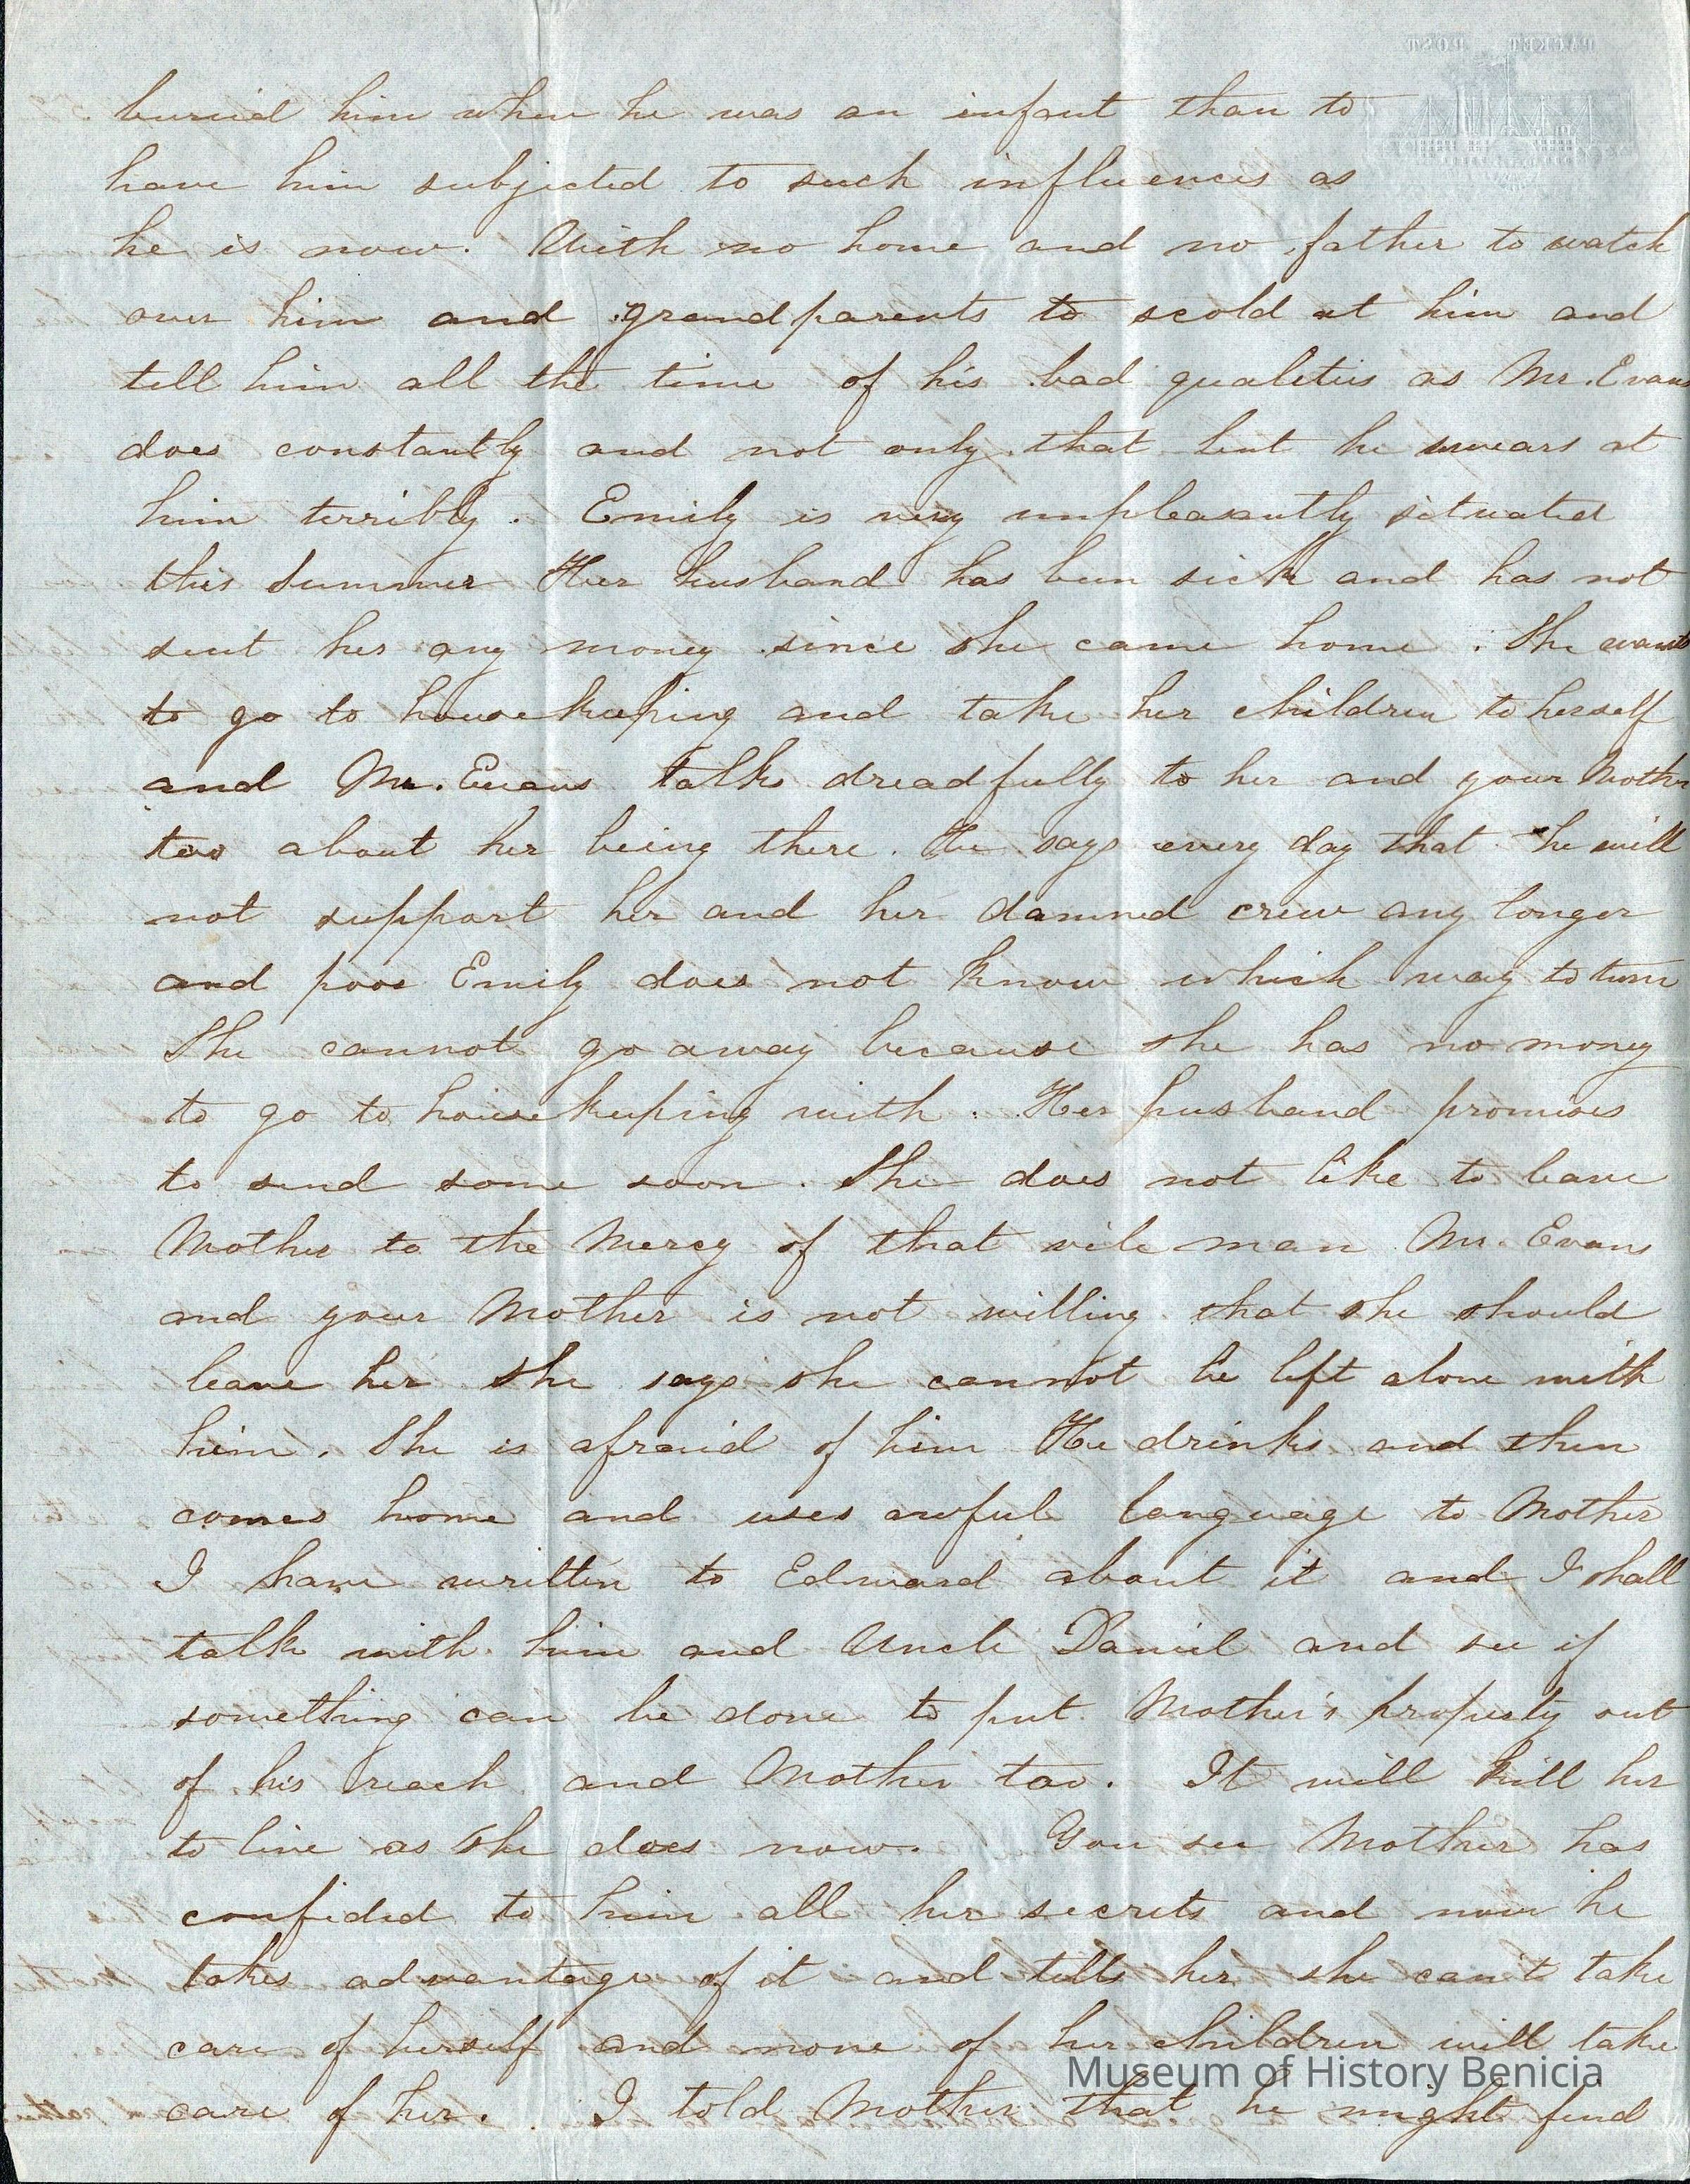 PACKET POST
buried him when he was an infant than to
have him subjected to such influences as
he is now. With no home and no father to watch
over him and grandparents to scold at him and
tell him all the time of his bad qualities as Mr. Evans
does constantly and not only that but he swears at
him terribly. Emily is very unpleasantly situated
this Summer Her husband has been sick and has not
sent her any money since she came home. She wants
to go to housekeeping and take her children to herself
and Mr. Evans talks dreadfully to her and your Mother
too about her being there. He says every day that he will
not support her and her damned crew any longer
and poor Emily does not know which way to turn
She cannot go away because she has no money
to go to housekeeping with. Her husband promises
to send some soon. She does not like to leave
Mother to the Mercy of that vile man Mr. Evans
and your Mother is not willing that she should
leave her she says she cannot be left alone with
him. She is afraid of him He drinks and then
comes home and uses awful language to Mother
I have written to Edward about it and I shall
talk with him and Uncle Daniel and see if
something can be done to put Mother's property out
of his reach and Mother too. It will kill her
to live as she does now. You see Mother has
confided to him all her secrets and now he
takes advantage of it and tells her she can't take
care of herself and none of her children will take
care of her. I told Mother that he might find
Museum of History Benicia